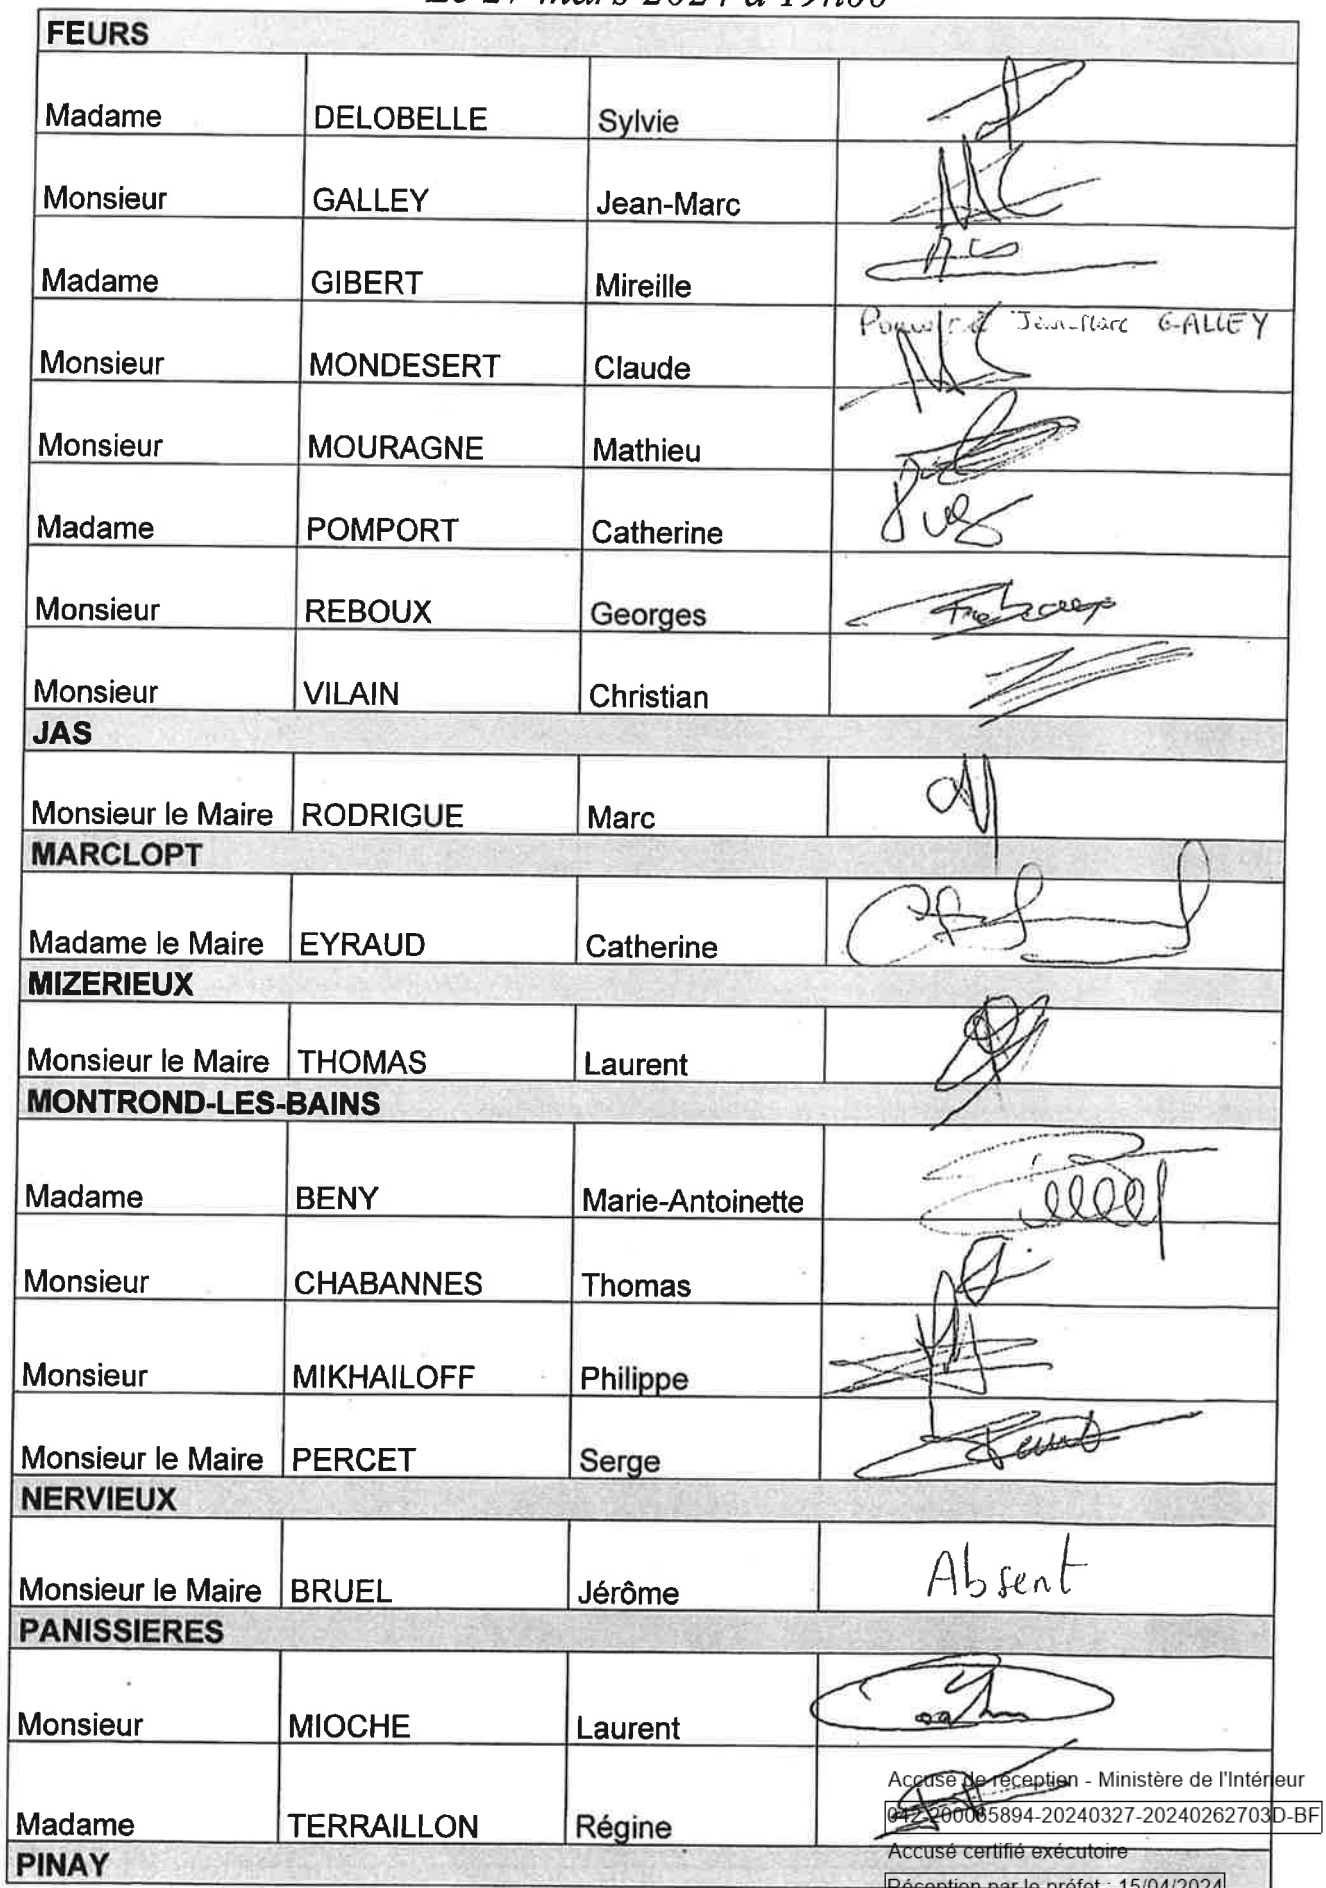 Le 27 mars 2024 à 19h00
FEURS
Madame DELOBELLE Sylvie
Monsieur GALLEY Jean-Marc
Madame GIBERT Mireille
Jean-Marc GALLEY
Monsieur MONDESERT Claude
Monsieur MOURAGNE Mathieu
Madame POMPORT Catherine
Monsieur REBOUX Georges
Monsieur VILAIN Christian
JAS
Monsieur le Maire RODRIGUE Marc
MARCLOPT
Madame le Maire EYRAUD Catherine
MIZERIEUX
Monsieur le Maire THOMAS Laurent
MONTROND-LES-BAINS
Madame BENY Marie-Antoinette
Monsieur CHABANNES Thomas
Monsieur MIKHAILOFF Philippe
Monsieur le Maire PERCET Serge
NERVIEUX
Monsieur le Maire BRUEL Jérôme Absent
PANISSIERES
Monsieur MIOCHE Laurent
Accusé de réception - Ministère de l'Intérieur
042-200065894-20240327-20240262703D-BF
Madame TERRAILLON Régine
Accusé certifié exécutoire
PINAY
Réception par le préfet : 15/04/2024